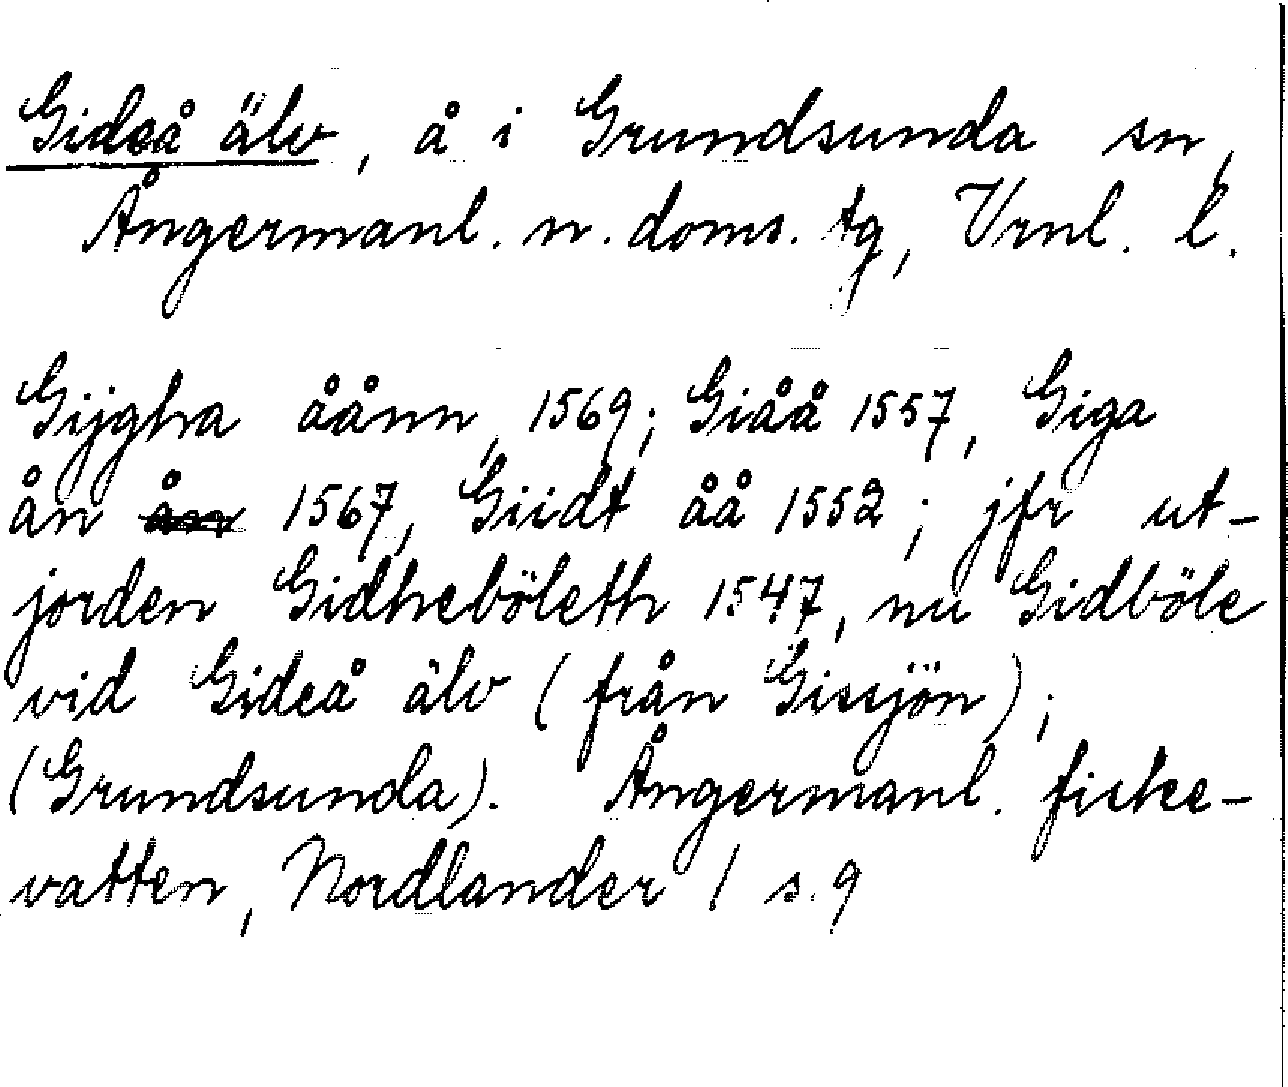 Gideå älv, å i Grundsunda sn,
Ångermanl. n. doms. tg, Vrnl. l.
Gijgha åånn, 1569; Giåå 1557, Giga
ån ån 1567, Giidt åå 1552; jfr ut-
jorden Gidheböleth 1547, nu Gidböle
vid Gideå älv (från Gissjön);
(Grundsunda). Ångermanl. fiske-
vatten, Nordlander 1 s. 9